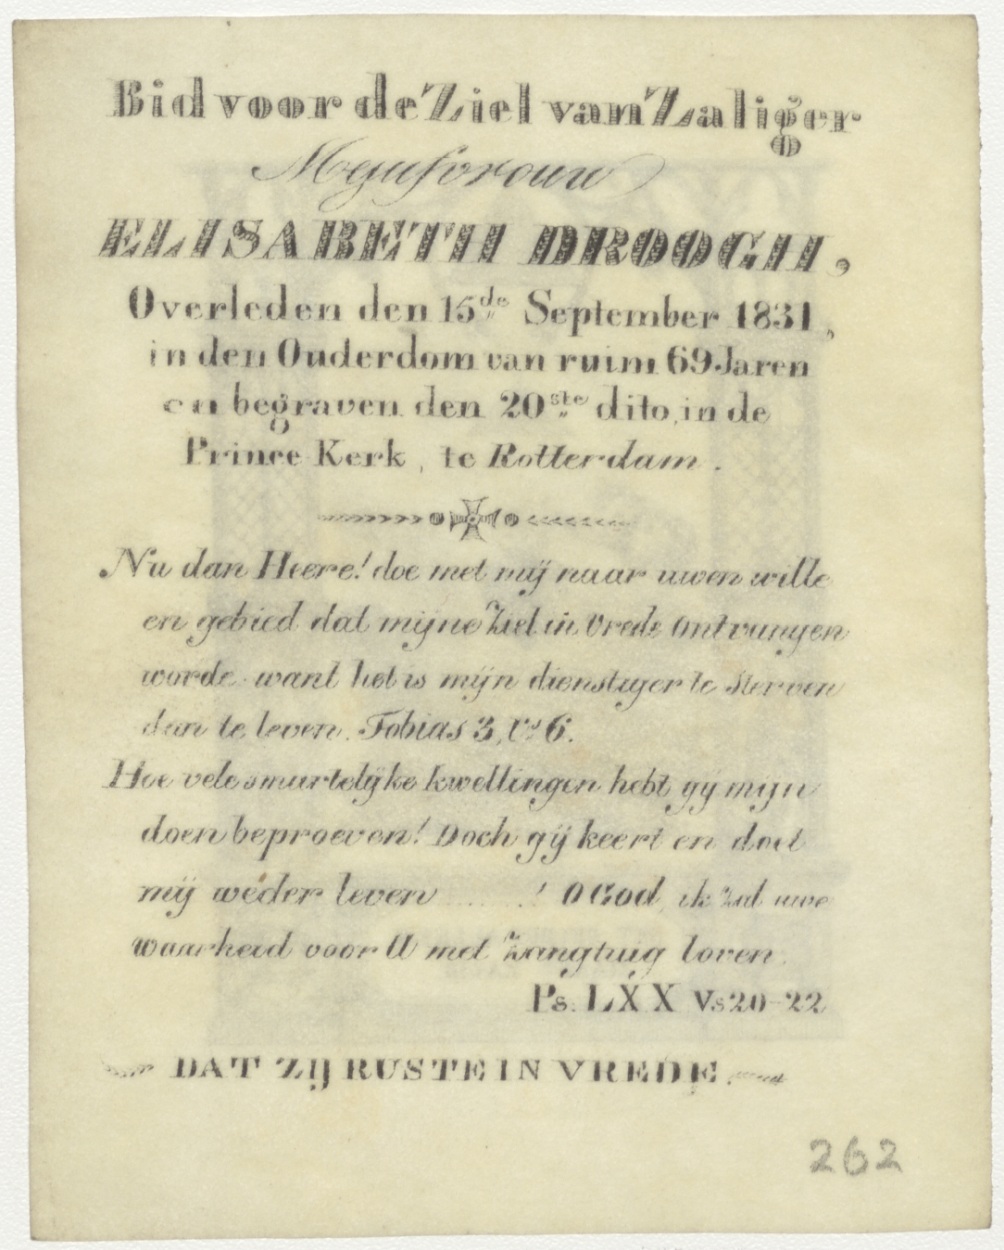 Bid voor de Ziel van Zaliger
Mejufvrouw
ELISABETH DROOGH,
Overleden den 15de September 1831,
in den Ouderdom van ruim 69 Jaren
en begraven den 20ste dito, in de
Prince Kerk, te Rotterdam.
Nu dan Heere! doe met mij naar uwen wille
en gebied dat mijne Ziel in Vrede Ontvangen
worde want het is mijn dienstiger te Sterven
dan te leven. Tobias 3, Vs 6.
Hoe vele smartelijke kwellingen hebt gij mijn
doen beproeven! Doch gij keert en doet
mij weder leven ......! O God, ik zal uwe
waarheid voor U met Zangtuig loven.
Ps. LXX Vs 20-22
DAT ZIJ RUSTE IN VREDE.
262